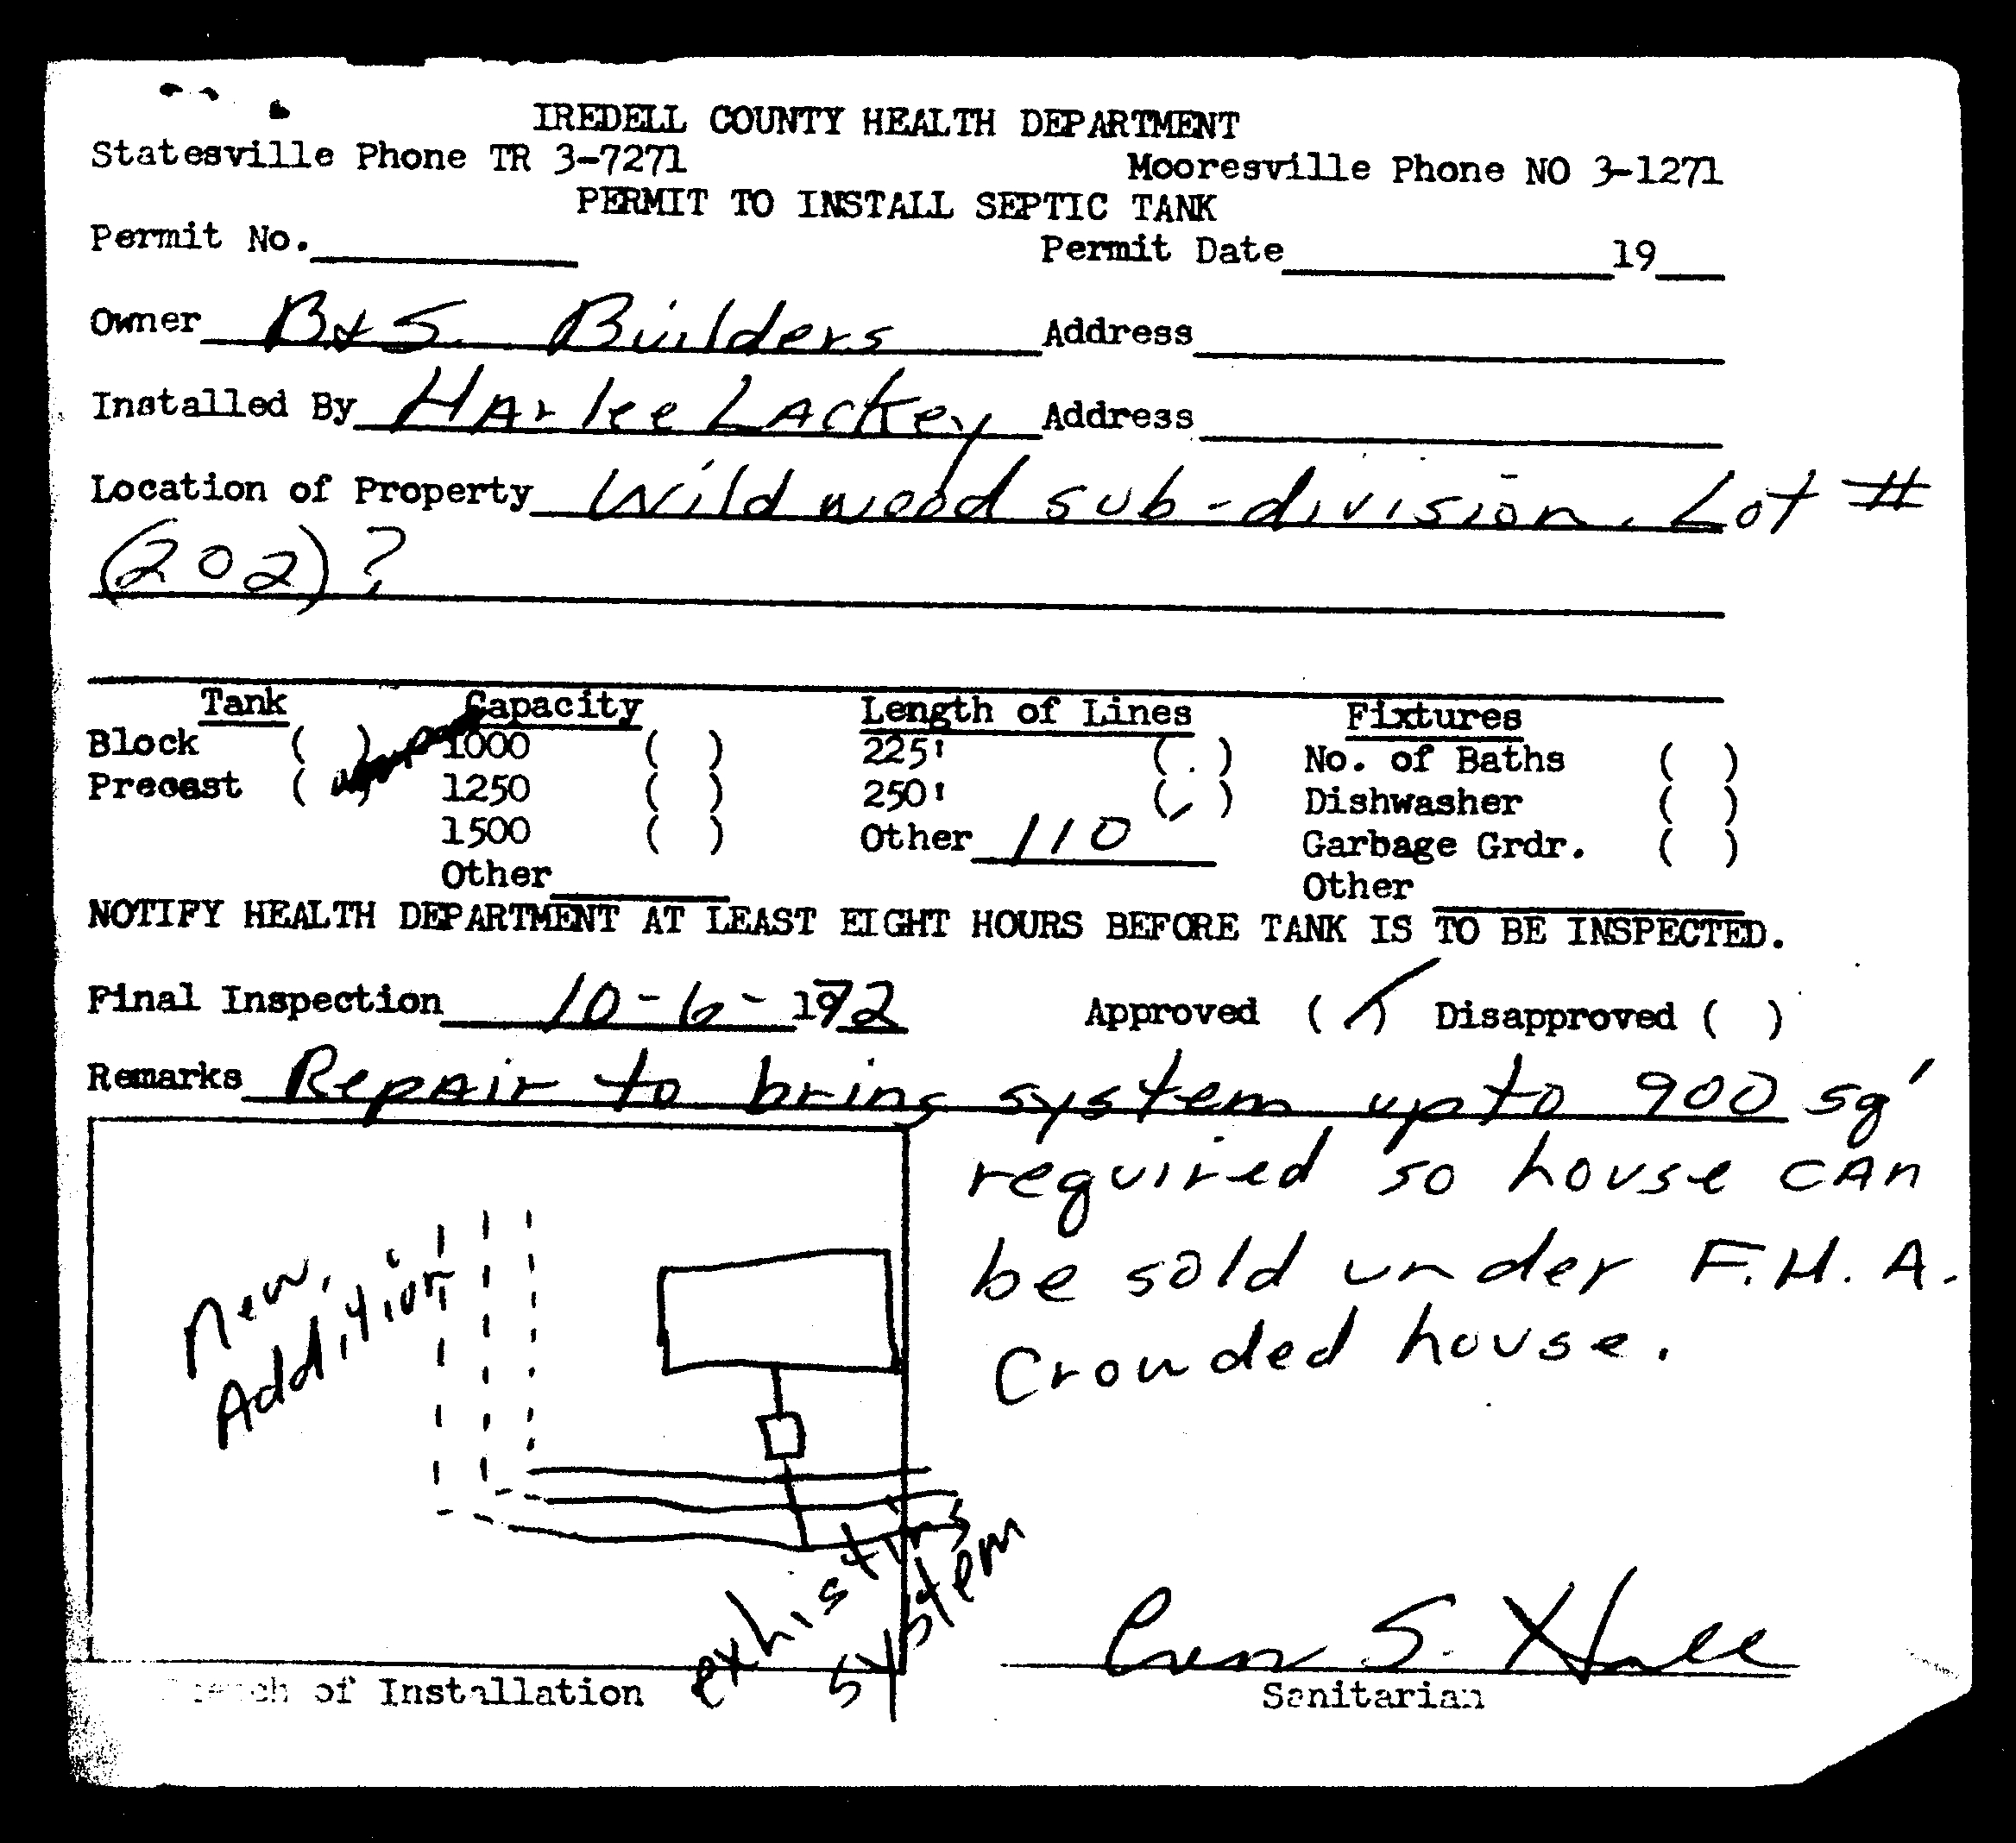 IREDELL COUNTY HEALTH DEPARTMENT
Statesville Phone TR 3-7271 Mooresville Phone NO 3-1271
PERMIT TO INSTALL SEPTIC TANK
Permit No. Permit Date 19
Owner B & S. Builders Address
Installed By HArlee LAckey Address
Location of Property Wildwood sub-division. Lot #
(202)?
Tank Capacity Length of Lines Fixtures
Block ( ) 1000 ( ) 225' ( ) No. of Baths ( )
Precast ( ) 1250 ( ) 250' ( ) Dishwasher ( )
1500 ( ) Other 110 Garbage Grdr. ( )
Other Other
NOTIFY HEALTH DEPARTMENT AT LEAST EIGHT HOURS BEFORE TANK IS TO BE INSPECTED.
Final Inspection 10-6-1972 Approved (✓) Disapproved ( )
Remarks RepAir to bring system up to 900 sq'
required so house cAn
be sold under F.H.A.
Crowded house.
new
Addition
exhisting
system
of Installation
S. Hall
Sanitarian